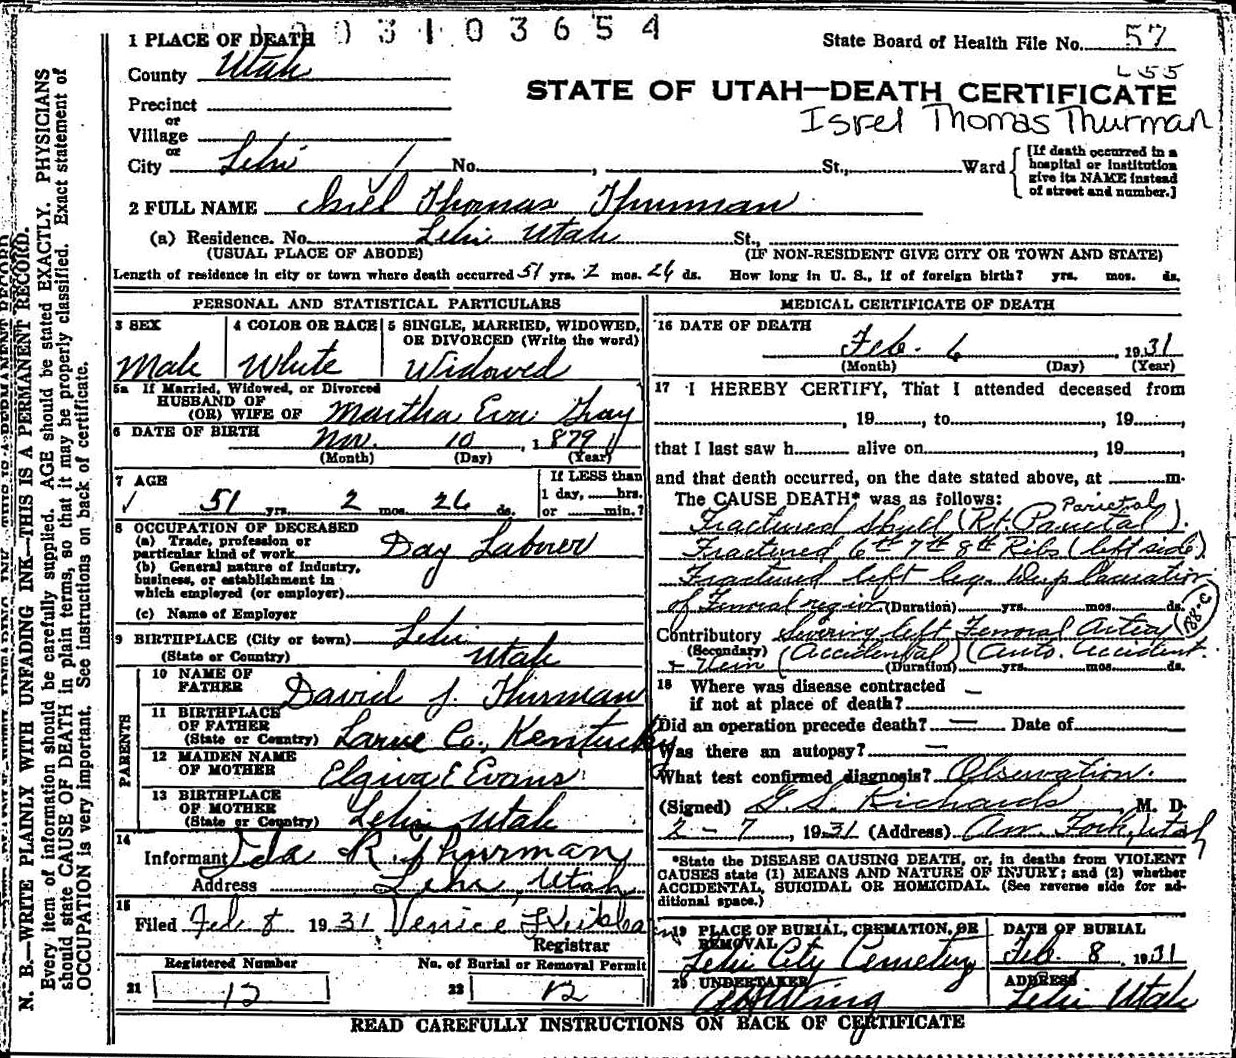 03103654
1 PLACE OF DEATH
State Board of Health File No. 57
County Utah
L55
STATE OF UTAH—DEATH CERTIFICATE
Precinct
or
Isrel Thomas Thurman
Village
or
City Lehi No. , St., Ward
[If death occurred in a
hospital or institution
give its NAME instead
of street and number.]
2 FULL NAME Isriel Thomas Thurman
(a) Residence. No. Lehi Utah St.,
(USUAL PLACE OF ABODE) (IF NON-RESIDENT GIVE CITY OR TOWN AND STATE)
Length of residence in city or town where death occurred 51 yrs. 2 mos. 26 ds. How long in U. S., if of foreign birth? yrs. mos. ds.
PERSONAL AND STATISTICAL PARTICULARS
3 SEX
Male
4 COLOR OR RACE
White
5 SINGLE, MARRIED, WIDOWED,
OR DIVORCED (Write the word)
Widowed
5a If Married, Widowed, or Divorced
HUSBAND OF
(OR) WIFE OF Martha Eva Gray
6 DATE OF BIRTH Nov. 10 , 1879
(Month) (Day) (Year)
7 AGE
51 yrs. 2 mos. 26 ds.
If LESS than
1 day, hrs.
or min.?
8 OCCUPATION OF DECEASED
(a) Trade, profession or
particular kind of work Day Laborer
(b) General nature of industry,
business, or establishment in
which employed (or employer)
(c) Name of Employer
9 BIRTHPLACE (City or town) Lehi
(State or Country) Utah
PARENTS
10 NAME OF
FATHER David J. Thurman
11 BIRTHPLACE
OF FATHER
(State or Country) Larue Co., Kentucky
12 MAIDEN NAME
OF MOTHER Elgiva E Evans
13 BIRTHPLACE
OF MOTHER
(State or Country) Lehi Utah
14
Informant Ida R. Thurman
Address Lehi, Utah
15
Filed Feb 8 1931 Venice
Registrar
Registered Number No. of Burial or Removal Permit
21 12 22 12
MEDICAL CERTIFICATE OF DEATH
16 DATE OF DEATH
Feb. 6 , 1931
(Month) (Day) (Year)
17 I HEREBY CERTIFY, That I attended deceased from
, 19 , to , 19 ,
that I last saw h alive on , 19 ,
and that death occurred, on the date stated above, at m.
The CAUSE DEATH* was as follows:
Parietal
Fractured Skull (Rt. Parietal).
Fractured 6th 7th 8th Ribs (left side)
Fractured left leg. Deep Laceration
of Femoral region (Duration) yrs. mos. ds.
188-c
Contributory Severing left Femoral Artery
(Secondary) (Accidental) (Auto. Accident.
& Vein (Duration) yrs. mos. ds.
18 Where was disease contracted
if not at place of death? —
Did an operation precede death? — Date of
Was there an autopsy? —
What test confirmed diagnosis? Observation.
(Signed) G. S. Richards , M. D.
2-7 , 1931 (Address) Am. Fork, Utah
*State the DISEASE CAUSING DEATH, or, in deaths from VIOLENT
CAUSES state (1) MEANS AND NATURE OF INJURY; and (2) whether
ACCIDENTAL, SUICIDAL OR HOMICIDAL. (See reverse side for ad-
ditional space.)
19 PLACE OF BURIAL, CREMATION, OR
REMOVAL
Lehi City Cemetery
DATE OF BURIAL
Feb. 8 , 1931
20 UNDERTAKER
ADDRESS
Lehi Utah
READ CAREFULLY INSTRUCTIONS ON BACK OF CERTIFICATE
N. B.—WRITE PLAINLY WITH UNFADING INK—THIS IS A PERMANENT RECORD.
Every item of information should be carefully supplied. AGE should be stated EXACTLY. PHYSICIANS
should state CAUSE OF DEATH in plain terms, so that it may be properly classified. Exact statement of
OCCUPATION is very important. See instructions on back of certificate.